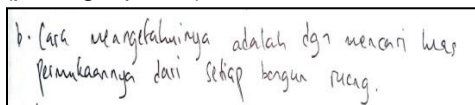 b. Cara mengetahuinya adalah dgn mencari luas
permukaannya dari setiap bangun ruang.